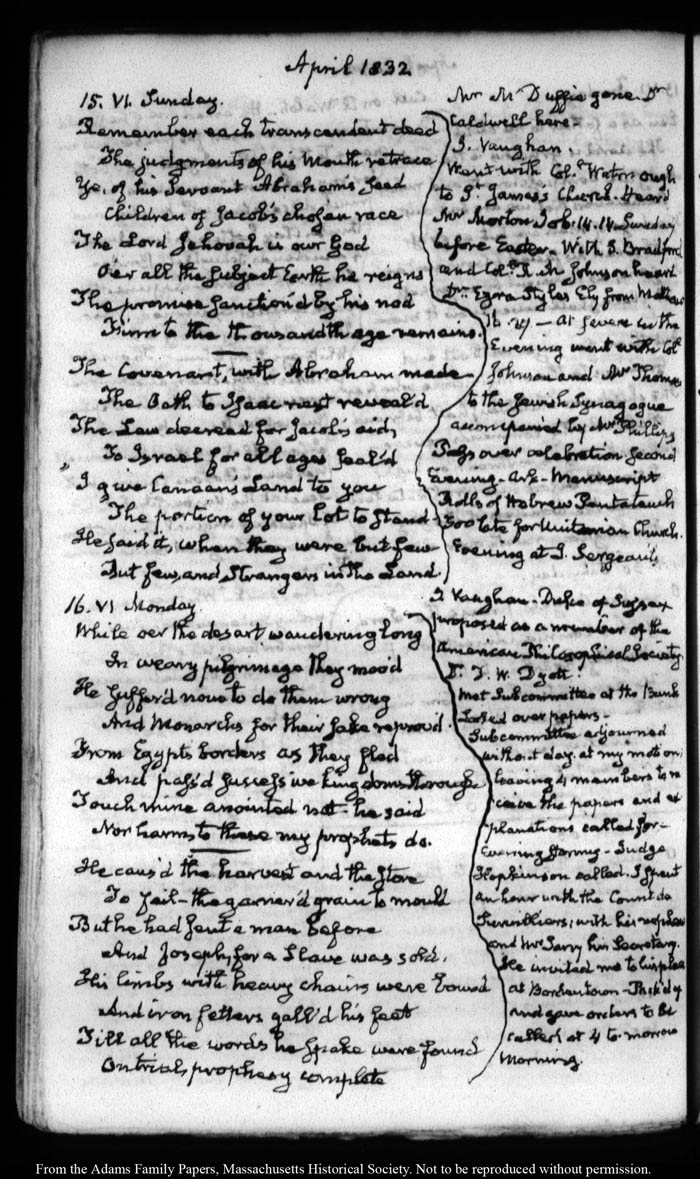 April 1832
15. VI. Sunday.
Remember each transcendent deed
The judgments of his Mouth retrace
Ye, of his Servant Abraham's seed
Children of Jacob's chosen race
The Lord Jehovah is our God
O'er all the subject Earth he reigns
The promise sanction'd by his nod
Firm to the thousandth age remains.
The Covenant, with Abraham made
The Oath to Isaac next reveal'd
The Law decreed for Jacob's aid,
To Israel for all ages seal'd
"I give Canaan's Land to you
"The portion of your Lot to stand
He said it, when they were but few
But few, and Strangers in the Land.
Mr McDuffie gone. Dr
Caldwell here.
J. Vaughan.
Went with Coll. Watmough
to St. James's Church. Heard
Mr Morton Job. 14.14. Sunday
before Easter. With S. Bradford
and Coll. R. M. Johnson heard
Dr. Ezra Styles Ely from Matthew
16. 24 — At seven in the
Evening went with Coll
Johnson and Mr Thomas
to the Jewish Synagogue
accompanied by Mr Phillips
Passover celebration Second
Evening. Ark. Manuscript
Rolls of Hebrew Pentateuch
Too late for Unitarian Church.
Evening at J. Sergeant's
16. VI Monday
While oer the desart wandering long
In weary pilgrimage they mov'd
He suffer'd none to do them wrong
And Monarchs for their sake reprov'd.
From Egypt's borders as they fled
And pass'd successive kingdoms through
Touch mine anointed not he said
Nor harm to these my prophets do.
He caus'd the harvest and the store
To fail the garner'd grain to mould
But he had sent a man before
And Joseph, for a Slave was sold.
His limbs with heavy chains were bound
And iron fetters gall'd his feet
Till all the words he spake were found
On trial, prophecy complete
J. Vaughan. Duke of Sussex
proposed as a member of the
American Philosophical Society
T. W. Dyott.
Met Subcommittee at the Bank
Looked over papers.
Subcommittee adjourned
without day at my motion;
leaving 4 members to re
ceive the papers and ex
planations called for.
Evening stormy. Judge
Hopkinson called. I spent
an hour with the Count de
Survilliers; with his nephew
and Mr Sarry his Secretary.
He invited me to his place
at Bordentown. Pack'd up
and gave orders to be
called at 4 to-morrow
Morning.
From the Adams Family Papers, Massachusetts Historical Society. Not to be reproduced without permission.